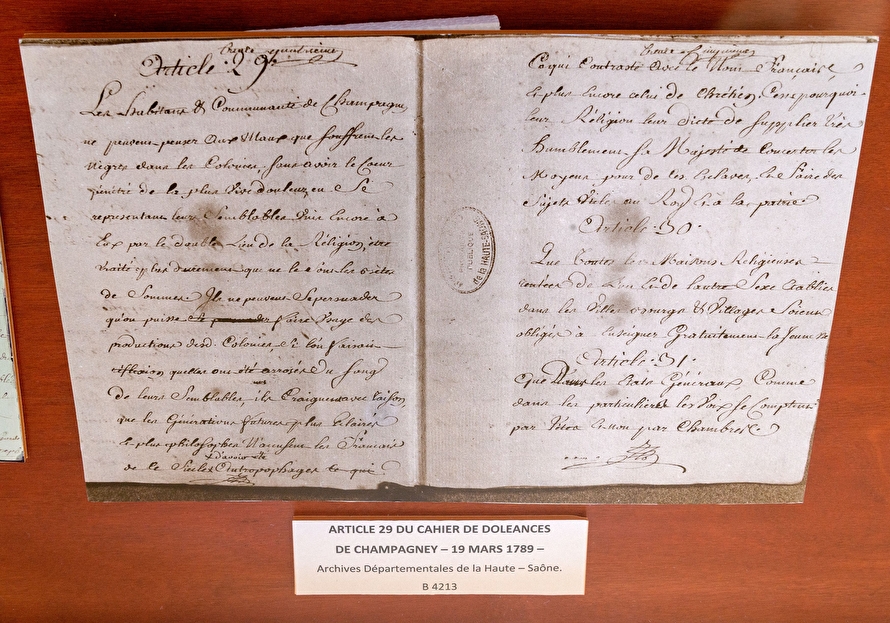 trente quatrieme
Article 29.
Les habitans & Communauté de Champagney
ne peuvent penser aux Maux que souffrent les
Negres dans les Colonies, sans avoir le Coeur
pénétré de la plus Vive douleur, en Se
représentant leurs Semblables Unis Encore à
Eux par le double Lien de la Réligion, être
traités plus durement que ne le Sont les bêtes
de Sommes. Ils ne peuvent Se persuader
qu'on puisse faire Usage des
productions desd. Colonies Si l'on faisait
réflexion qu'elles ont été arrosés du Sang
de leurs Semblables: ils Craignent avec raison
que les Générations futures plus Eclairés
et plus philosophes N'accusent les Français
de ce Siecle d'avoir été Antropophages ce qui
trente Cinquieme
Ce qui Contraste avec le Nom Français,
et plus encore celui de Chrétien. C'est pourquoi
leur Réligion leur dicte de Supplier très
humblement Sa Majesté de Concerter les
Moyens pour de ces Esclaves, En faire des
Sujets Utiles au Roy & à la patrie
Article .30.
Que toutes les Maisons Religieuses
rentées de l'un & de l'autre Sexe Etablies
dans les Villes & Villages Soient
obligés à Enseigner Gratuitement la Jeunesse
Article .31.
Que Dans les Etats Généraux, Comme
dans les particuliers les Voix se Comptent
par tête et Non par Chambres
PUBLIQUE
de la HAUTE-SAÔNE
ARTICLE 29 DU CAHIER DE DOLEANCES
DE CHAMPAGNEY – 19 MARS 1789 –
Archives Départementales de la Haute – Saône.
B 4213